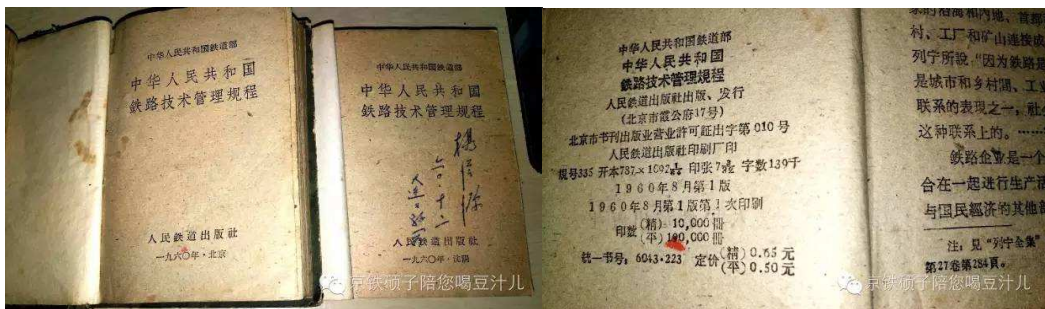 中华人民共和国鉄道部
中华人民共和国
鉄路技术管理规程
人民鉄道出版社
一九六〇年·北京
中华人民共和国鉄道部
中华人民共和国
鉄路技术管理规程
六〇·十二
人民鉄道出版社
一九六〇年·沈阳
中华人民共和国鉄道部
中华人民共和国
鉄路技术管理规程
人民鉄道出版社出版、发行
(北京市霞公府17号)
北京市书刊出版业营业許可証出字第010号
人民鉄道出版社印刷厂印
規号335 开本787×1092 印张7 字数139千
1960年8月第1版
1960年8月第1版第1次印刷
印数(精)10,000册
(平)100,000册
統一书号:6043·223 定价(精)0.65元
(平)0.50元
村、工厂和矿山连接成
列宁所說"因为鉄路是
是城市和乡村間、工业
联系的表现之一,社会
这种联系上的。……
鉄路企业是一个
合在一起进行生产活
与国民經济的其他部
注:見"列宁全集"
第27卷第284頁。
京铁硕子陪您喝豆汁儿
京铁硕子陪您喝豆汁儿